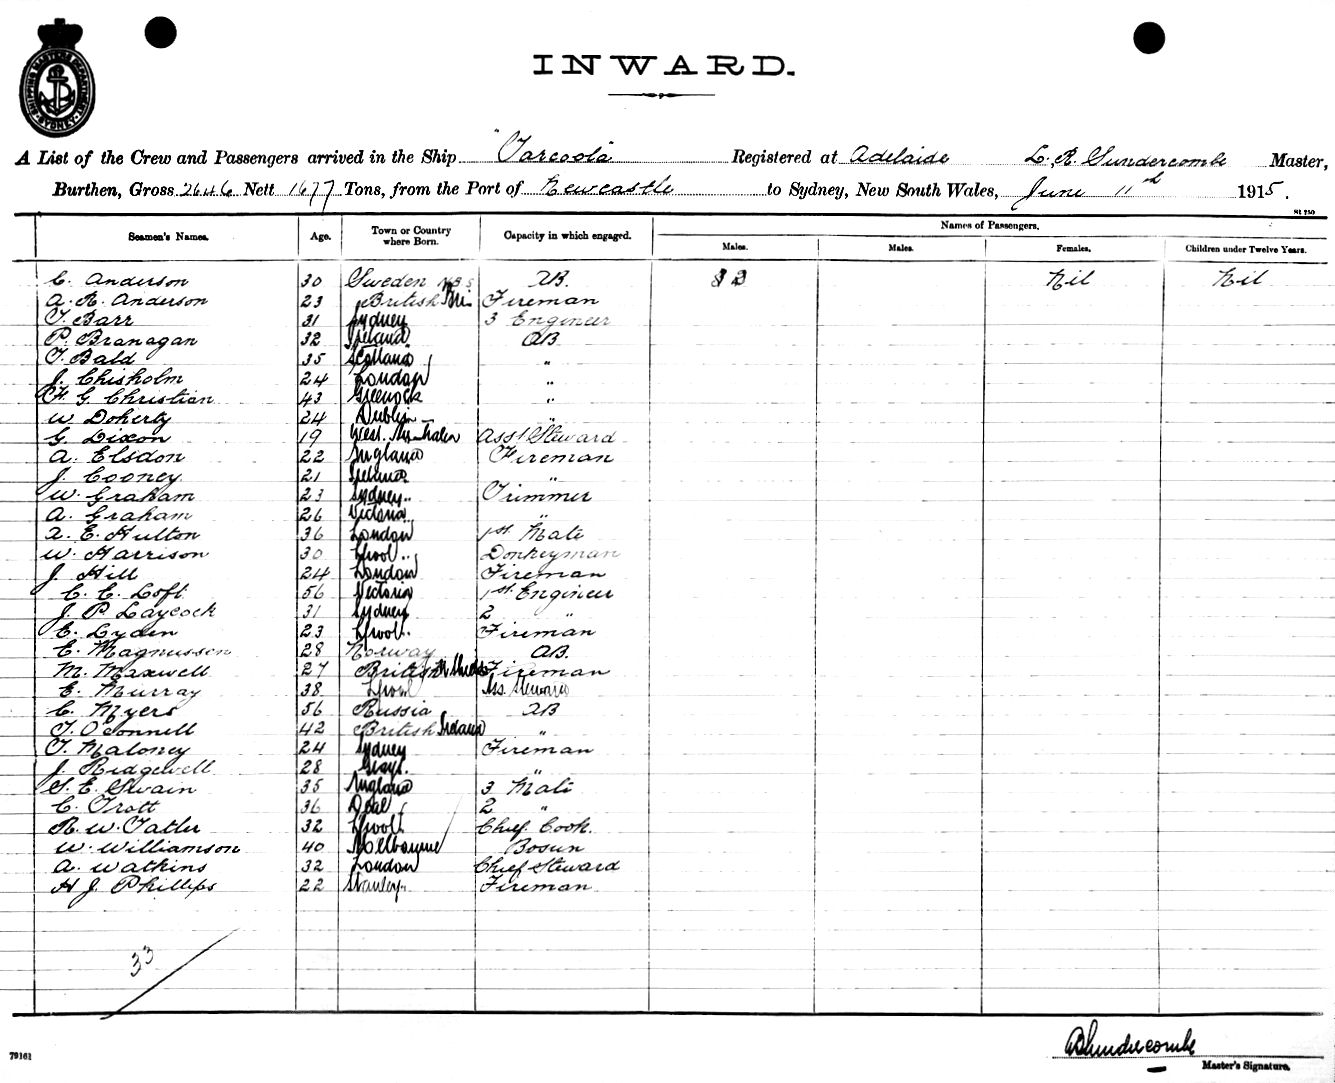 SHIPPING MASTER'S DEPARTMENT
SYDNEY
INWARD.
A List of the Crew and Passengers arrived in the Ship "Tarcoola" Registered at Adelaide L. R. Sundercombe Master,
Burthen, Gross 2646 Nett 1677 Tons, from the Port of Newcastle to Sydney, New South Wales, June 11th 1915.
Seamen's Names. Age. Town or Country where Born. Capacity in which engaged. Names of Passengers.
Males. Males. Females. Children under Twelve Years.
C. Anderson 30 Sweden AB. Nil Nil
A. R. Anderson 23 British Fireman
T. Barr 31 Sydney 3 Engineer
P. Branagan 32 Ireland AB
T. Bald 35 Scotland "
J. Chisholm 24 London "
H. G. Christian 43 Greenock "
W. Doherty 24 Dublin "
G. Dixon 19 West. Australia Asst Steward
A. Elsdon 22 England Fireman
J. Cooney 21 Ireland "
W. Graham 23 Sydney Trimmer
A. Graham 26 Victoria "
A. E. Hulton 36 London 1st Mate
W. Harrison 30 L'pool Donkeyman
J. Hill 24 London Fireman
C. C. Loft 56 Victoria 1st Engineer
J. P. Laycock 31 Sydney 2 "
E. Lyden 23 L'pool Fireman
C. Magnussen 28 Norway AB.
M. Maxwell 27 British N Shields Fireman
E. Murray 38 L'pool Ass. Steward
C. Myers 56 Russia AB
T. O'Connell 42 British Ireland "
T. Maloney 24 Sydney Fireman
J. Ridgewell 28 Grays. "
S. E. Swain 35 England 3 Mate
C. Trott 36 Deal 2 "
R. W. Tatler 32 L'pool Chief Cook.
W. Williamson 40 Melbourne Bosun
A. Watkins 32 London Chief Steward
H J. Phillips 22 Stanley Fireman
33
79161
Master's Signature.